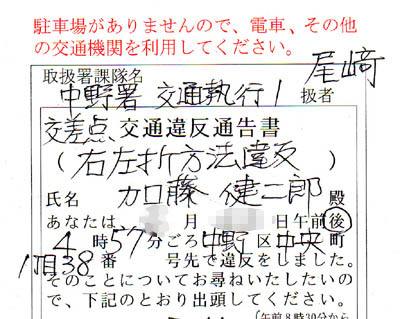 駐車場がありませんので、電車、その他
の交通機関を利用してください。
取扱署課隊名
中野署 交通執行1 扱者 尾﨑
交差点 交通違反通告書
(右左折方法違反)
氏名 加藤 健二郎 殿
あなたは 月 日午前後
4時57分ごろ中野区中央町
1丁目38番 号先で違反をしました。
そのことについてお尋ねいたしたいので
で、下記のとおり出頭してください。
(午前8時30分から